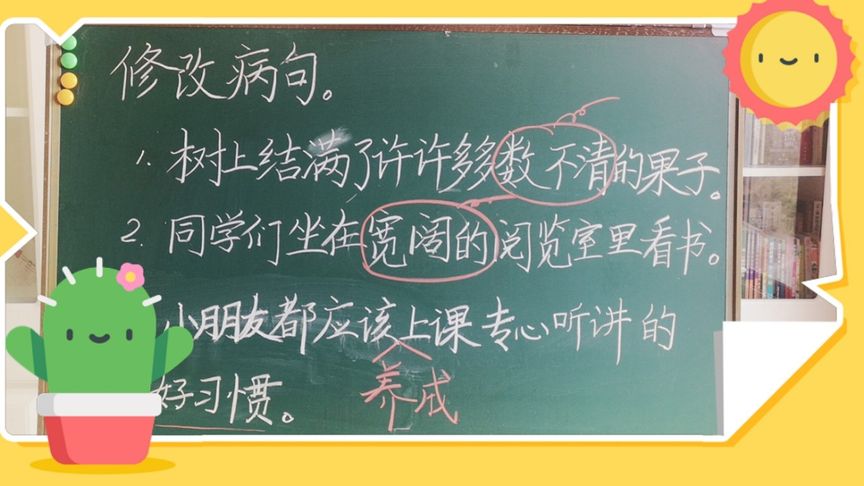 修改病句。
1. 树上结满了许许多多数不清的果子。
2. 同学们坐在宽阔的阅览室里看书。
小朋友都应该上课专心听讲的
养成
好习惯。